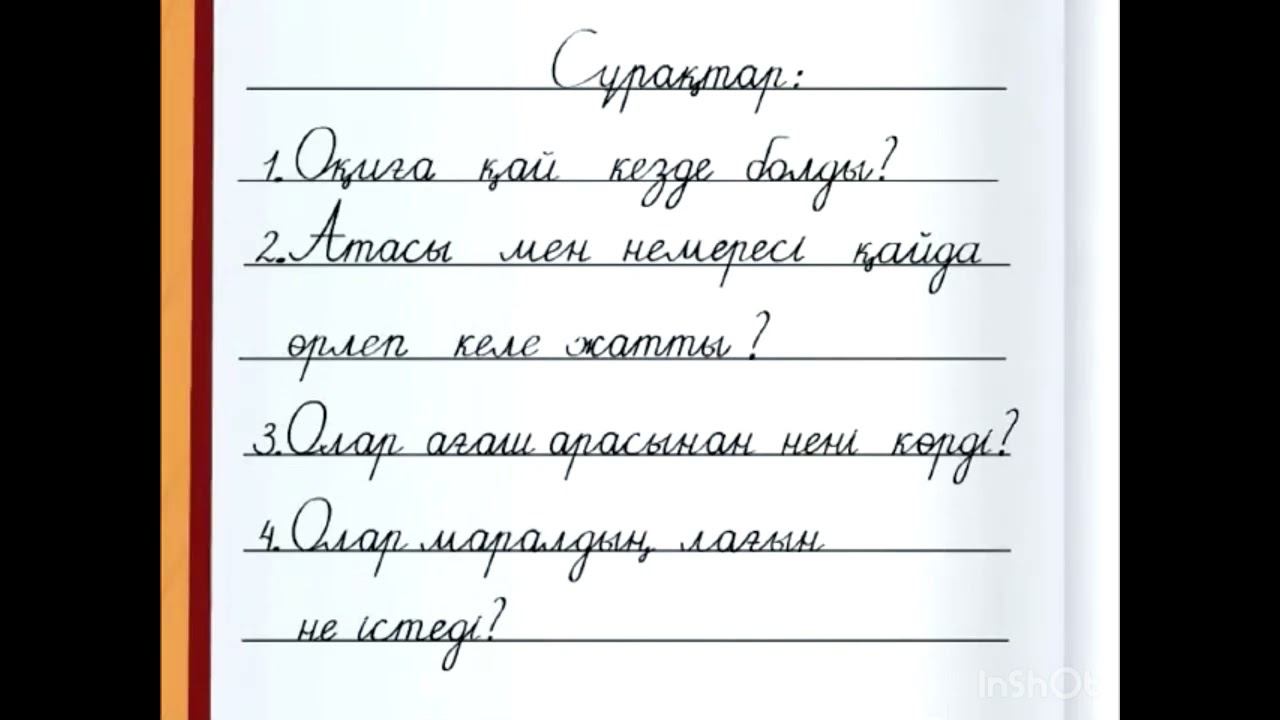 Сұрақтар:
1. Оқиға қай кезде болды?
2. Атасы мен немересі қайда
өрлеп келе жатты?
3. Олар ағаш арасынан нені көрді?
4. Олар маралдың лағын
не істеді?
InShOt